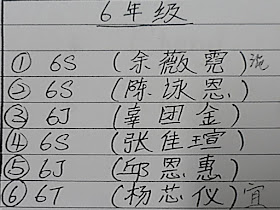 6年级
① 6S (余薇霓)
② 6S (陈泳恩)
③ 6J (辜团金)
④ 6S (张佳瑄)
⑤ 6J (邱恩惠)
⑥ 6T (杨芯仪) 宜